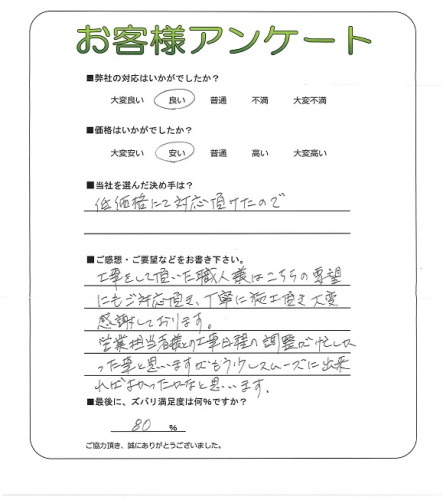 お客様アンケート
■弊社の対応はいかがでしたか?
大変良い 良い 普通 不満 大変不満
■価格はいかがでしたか?
大変安い 安い 普通 高い 大変高い
■当社を選んだ決め手は?
低価格にて対応頂けたので
■ご感想・ご要望などをお書き下さい。
工事をして頂いた職人様はこちらの要望
にもご対応頂き、丁寧に施工頂き大変
感謝しております。
営業担当者様との工事日程の調整が忙しか
った事と思いますがもう少しスムーズに出来
ればよかったかなと思います。
■最後に、ズバリ満足度は何%ですか?
80 %
ご協力頂き、誠にありがとうございました。